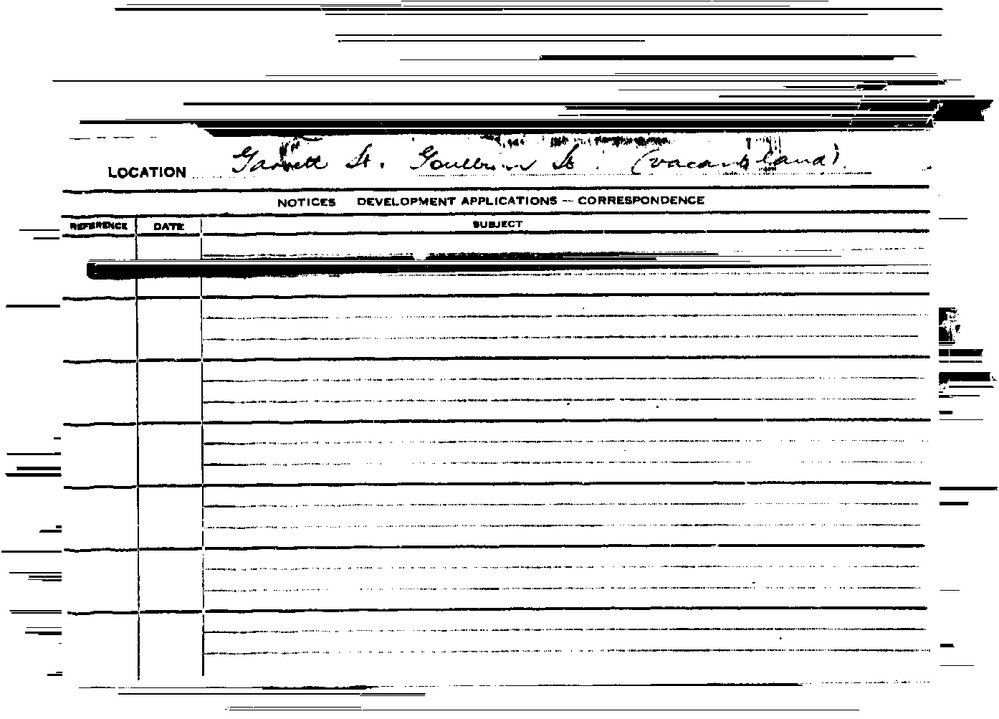 LOCATION Garrett St. Goulburn St. (vacant land)
NOTICES DEVELOPMENT APPLICATIONS — CORRESPONDENCE
REFERENCE DATE SUBJECT